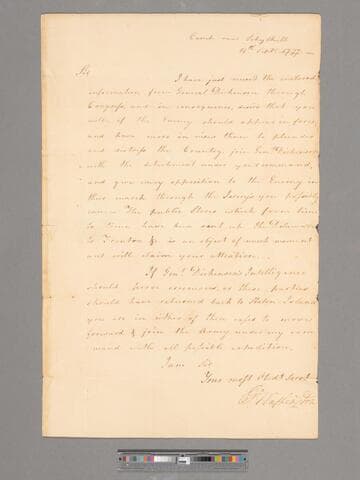 Camp near Schuylkill
14th Sept. 1777 —
Sir
I have just received the inclosed
information from General Dickinson through
Congress, and in consequence, desire that you
will, if the Enemy should appear in force,
and have more in view than to plunder
and distress the Country, join Genl. Dickinson
with the detachment under your command,
and give every opposition to the Enemy in
their march through the Jerseys you possibly
can. The public Stores which from time
to time have been sent up the Delaware
to Trenton &c is an object of much moment
and will claim your attention.
If Genl. Dickinson's Intelligence
should prove erroneous, or these parties
should have returned back to Staten Island
you are in either of these cases to move
forward & join the Army under my com
mand with all possible expedition.
I am Sir
Your most Obedt. Servt.
G:Washington